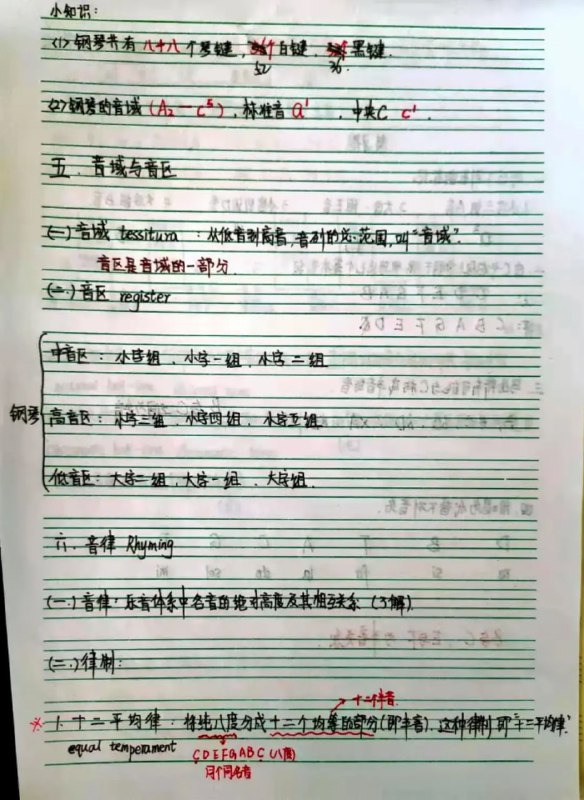 小知识：
(1) 钢琴共有八十八个琴键，52个白键，36个黑键.
(2) 钢琴的音域(A₂—c⁵)，标准音a¹，中央C c¹.
五、音域与音区
(一) 音域 tessitura：从低音到高音，音列的总范围，叫"音域".
音区是音域的一部分
(二) 音区 register
中音区：小字组、小字一组、小字二组
钢琴 高音区：小字三组、小字四组、小字五组.
低音区：大字二组、大字一组、大字组.
六、音律 Rhyming
(一) 音律：乐音体系中各音的绝对高度及其相互关系(了解).
(二) 律制：
十二个半音.
※ 1. 十二平均律：将纯八度分成十二个均等的部分(即半音)，这种律制即"十二平均律".
equal temperament
CDEFGABC (八度)
同个同名音